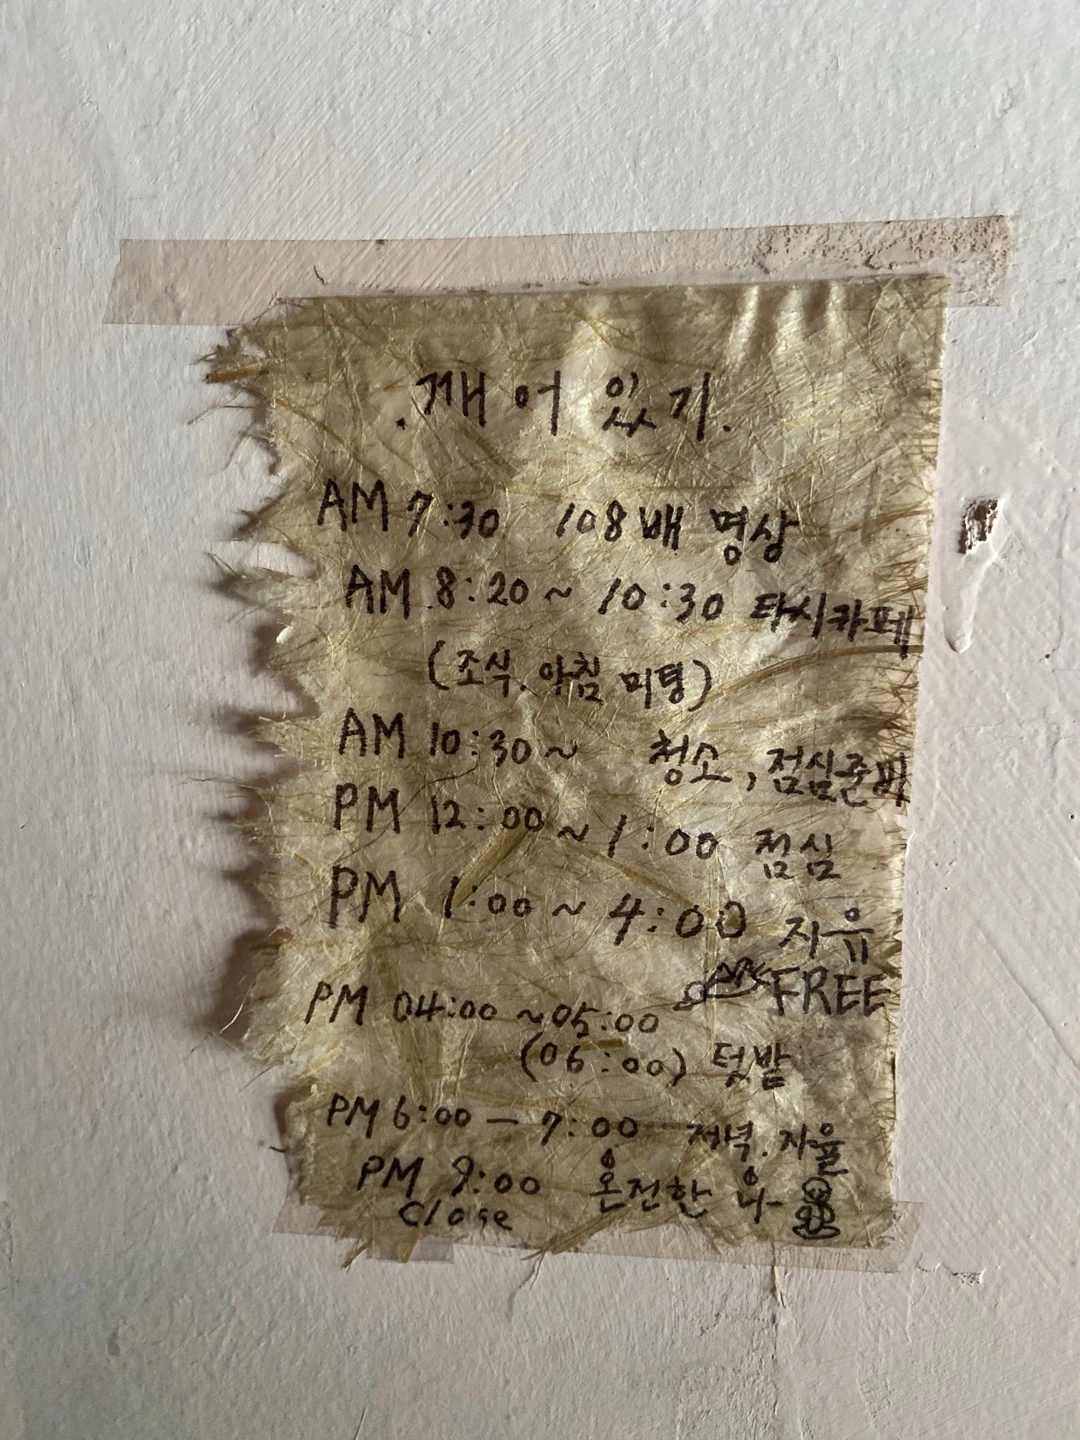 .깨어있기.
AM 7:30 108배 명상
AM 8:20 ~ 10:30 타시카페
(조식. 아침 미팅)
AM 10:30 ~ 청소, 점심준비
PM 12:00 ~ 1:00 점심
PM 1:00 ~ 4:00 자유
FREE
PM 04:00 ~ 05:00
(06:00) 텃밭
PM 6:00 — 7:00 저녁. 자율
PM 9:00 온전한 나
Close